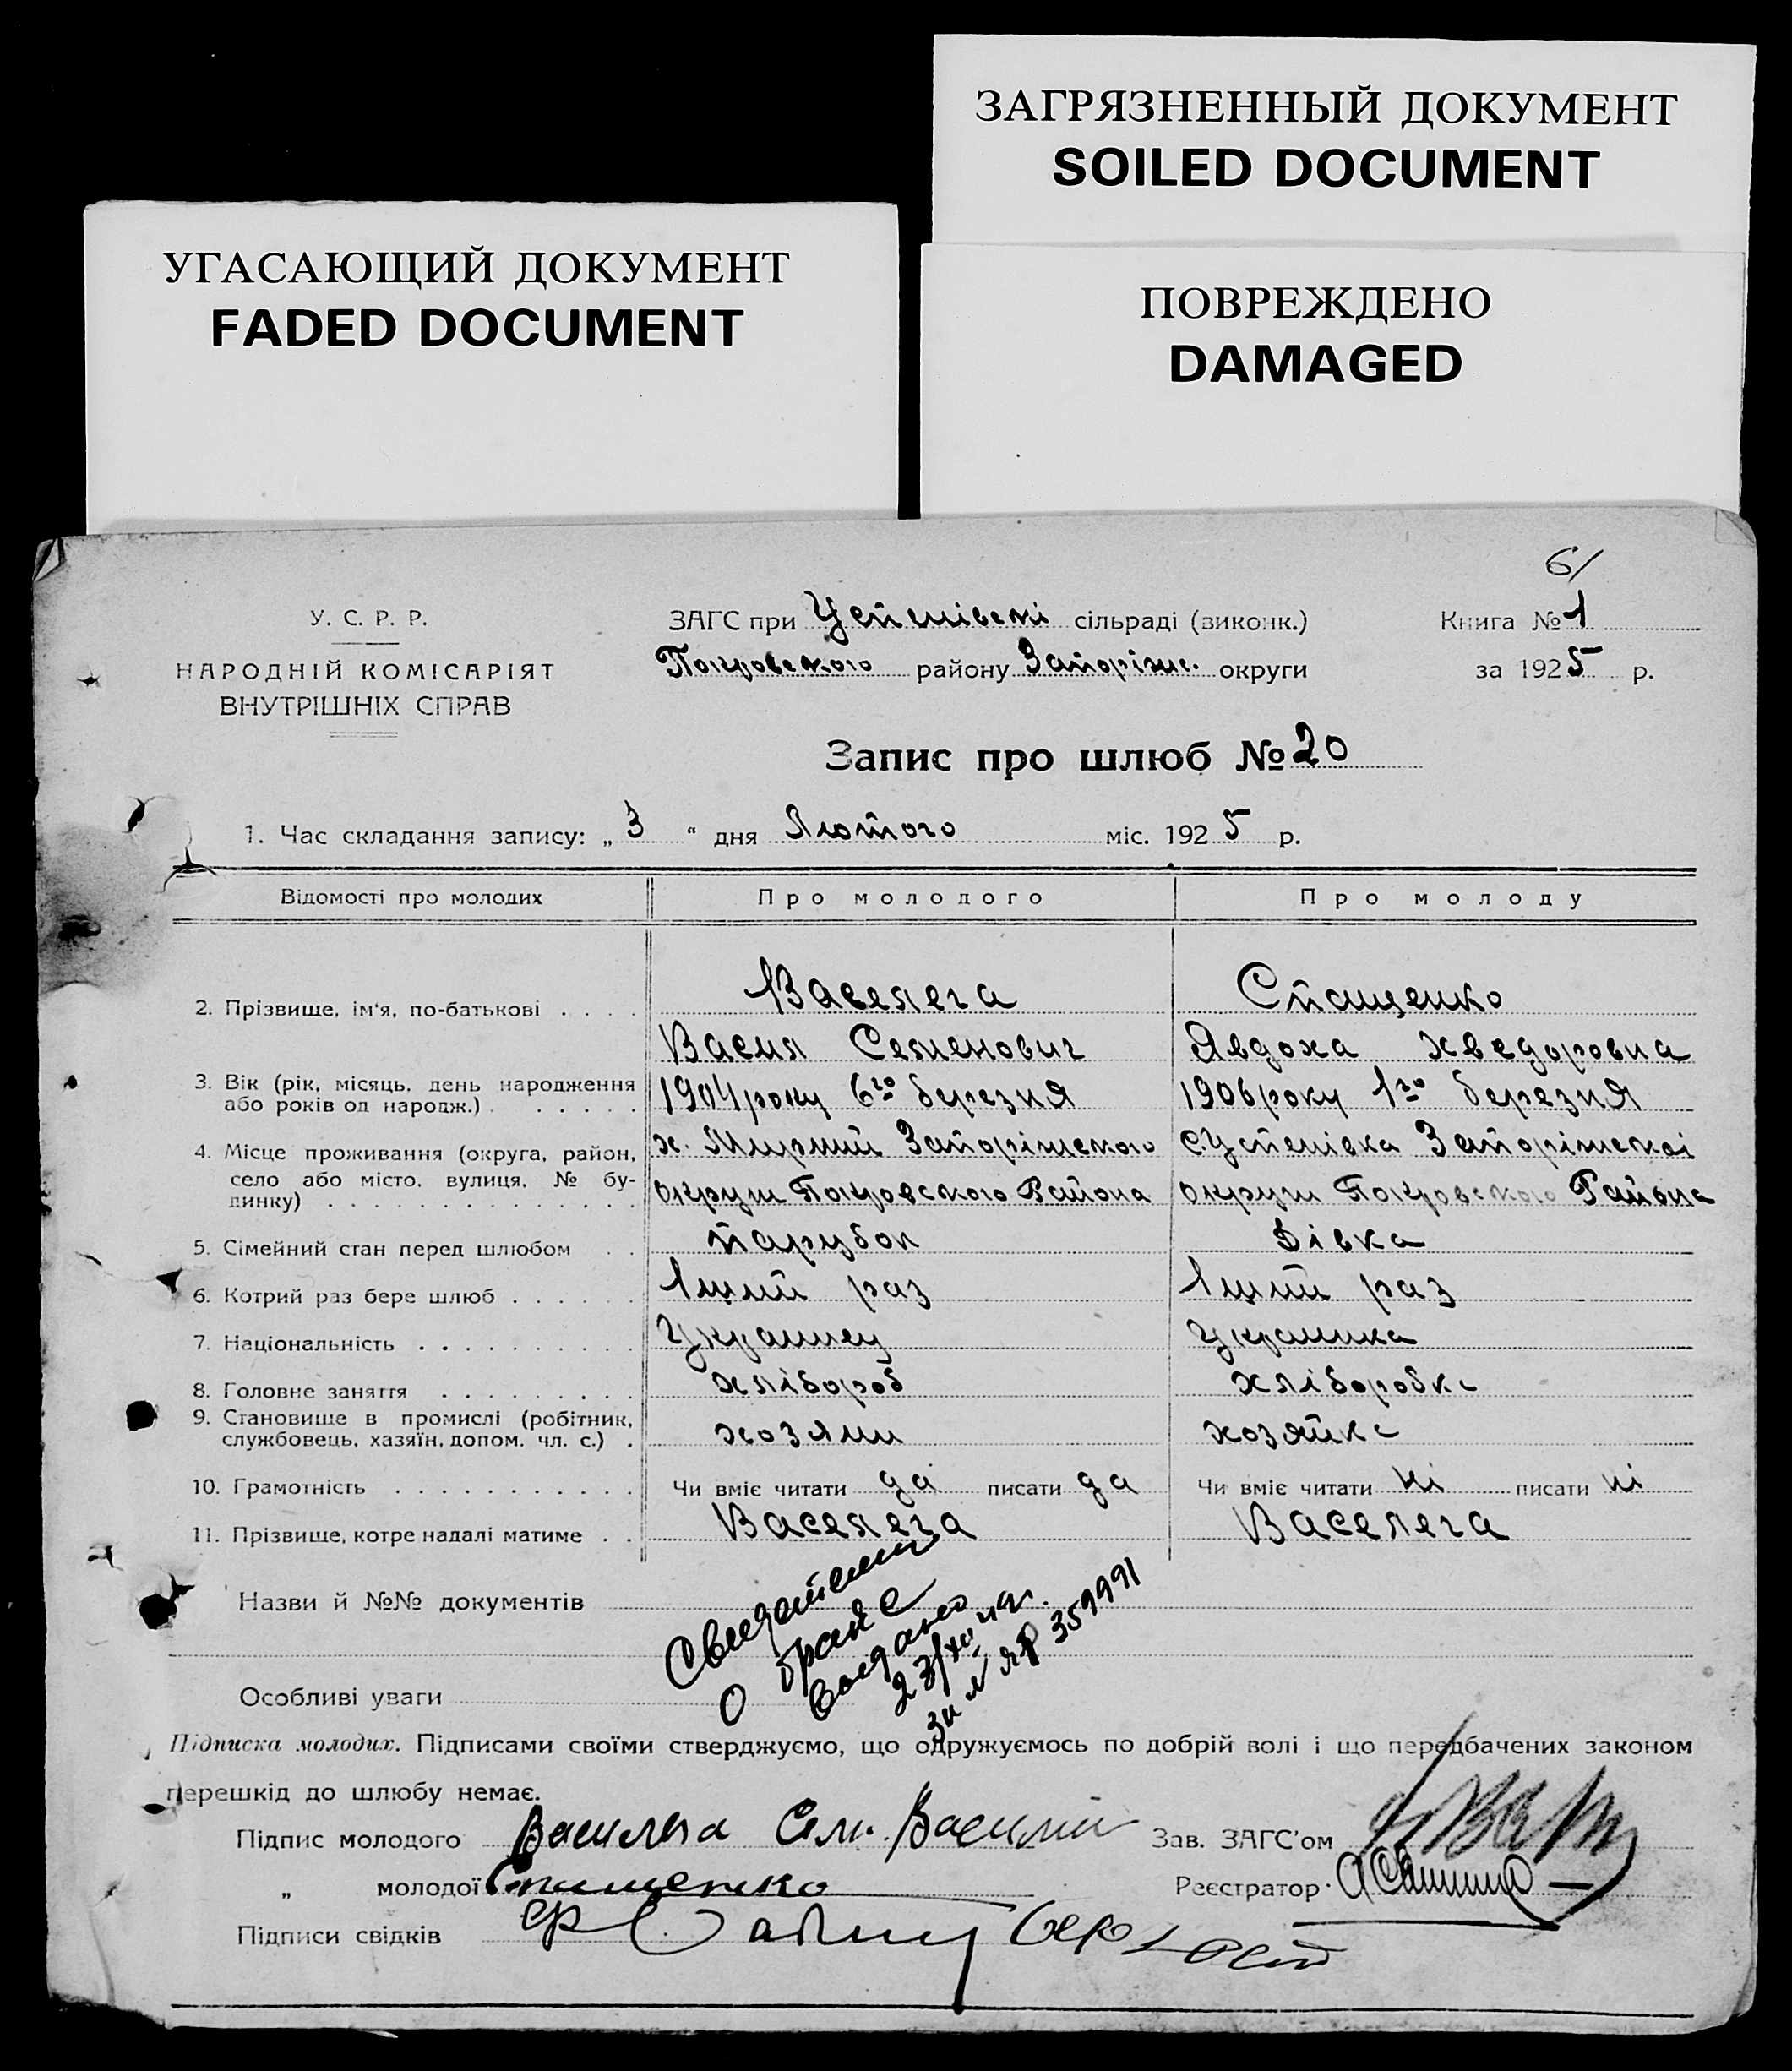 ЗАГРЯЗНЕННЫЙ ДОКУМЕНТ
SOILED DOCUMENT
УГАСАЮЩИЙ ДОКУМЕНТ
FADED DOCUMENT
ПОВРЕЖДЕНО
DAMAGED
6/
У. С. Р. Р.
НАРОДНІЙ КОМІСАРІЯТ
ВНУТРІШНІХ СПРАВ
ЗАГС при Успенівскі сільраді (виконк.)
Покровского району Запоріжс. округи
Книга № 1
за 1925 р.
Запис про шлюб № 20
1. Час складання запису: „ 3 “ дня Лютого міс. 1925 р.
Відомості про молодих Про молодого Про молоду
2. Прізвище, ім'я, по-батькові . . . . Васелега Стащенко
Васил Семенович Явдоха Хведоровна
3. Вік (рік, місяць, день народження або років од народж.) . . . . . . 1904 року 6го березня 1906 року 1го березня
4. Місце проживання (округа, район, село або місто, вулиця, № будинку) . . . . . . х. Мирний Запоріжского с Успенівка Запоріжскоі
округи Покровского Района округи Покровского Района
5. Сімейний стан перед шлюбом . . парубок Дівка
6. Котрий раз бере шлюб . . . . . . 1ший раз 1ший раз
7. Національність . . . . . . . . . . Украинец Украинка
8. Головне заняття . . . . . . . . . хлібороб хлібооробка
9. Становище в промислі (робітник, службовець, хазяїн, допом. чл. с.) . хозяин хозяйка
10. Грамотність . . . . . . . . . . . Чи вміє читати да писати да Чи вміє читати ні писати ні
11. Прізвище, котре надалі матиме . . Васелега Васелега
Назви й №№ документів
о браке
выдано
за № ЯР 359991
Особливі уваги
Підписка молодих. Підписами своїми стверджуємо, що одружуємось по добрій волі і що передбачених законом
перешкід до шлюбу немає.
Підпис молодого Василега Сем. Василий Зав. ЗАГС'ом
„ молодої Стащенко Реєстратор
Підписи свідків